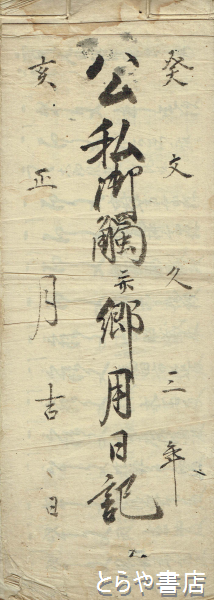 癸文久三年
公私御觸亦郷用日記
亥正月吉日
とらや書店